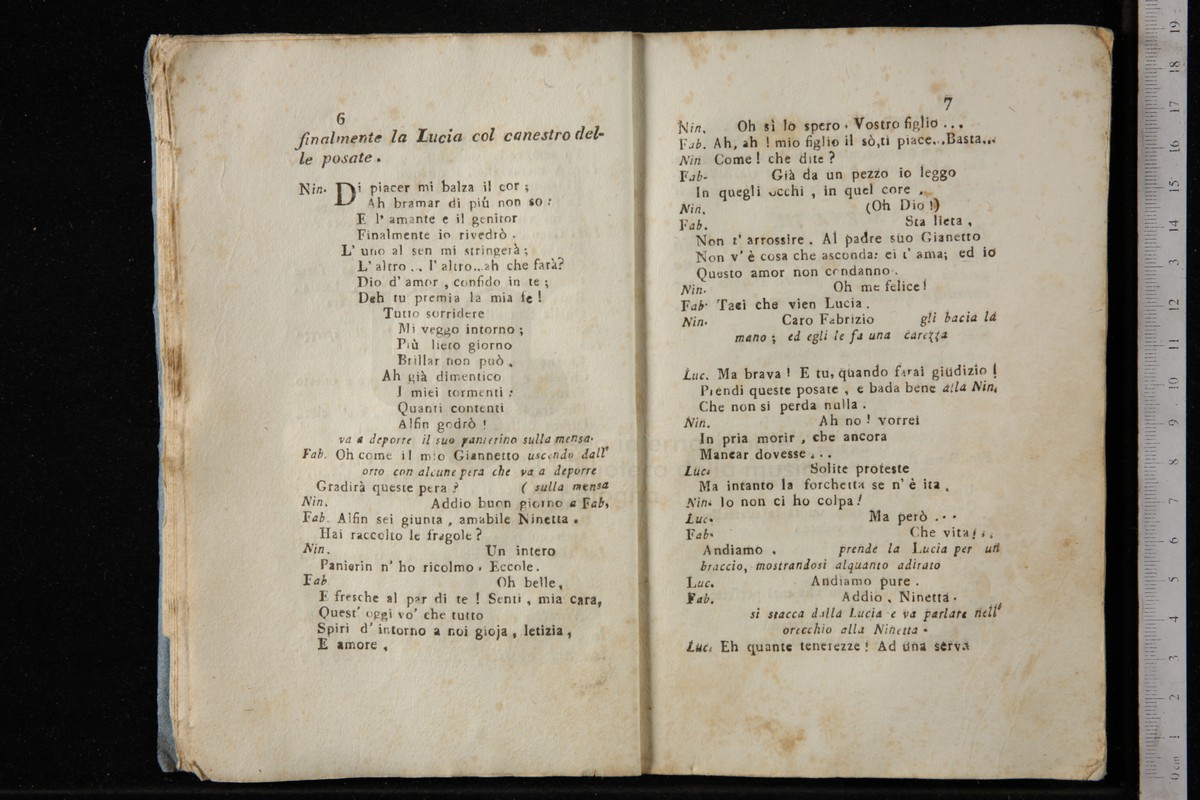 6
finalmente la Lucia col canestro del-
le posate.
Nin. Di piacer mi balza il cor;
Ah bramar di più non so:
E l' amante e il genitor
Finalmente io rivedrò.
L' uno al sen mi stringerà;
L' altro .. l' altro...ah che farà?
Dio d' amor, confido in te;
Deh tu premia la mia fe!
Tutto sorridere
Mi veggo intorno;
Più lieto giorno
Brillar non può.
Ah già dimentico
I miei tormenti:
Quanti contenti
Alfin godrò!
va a deporre il suo panierino sulla mensa.
Fab. Oh come il mio Giannetto uscendo dall'
orto con alcune pera che va a deporre
Gradirà queste pera? ( sulla mensa
Nin. Addio buon giorno a Fab,
Fab. Alfin sei giunta, amabile Ninetta.
Hai raccolto le fragole?
Nin. Un intero
Panierin n' ho ricolmo. Eccole.
Fab Oh belle,
E fresche al par di te! Senti, mia cara,
Quest' oggi vo' che tutto
Spiri d' intorno a noi gioja, letizia,
E amore,
7
Nin. Oh sì lo spero. Vostro figlio ...
Fab. Ah, ah! mio figlio il sò,ti piace...Basta...
Nin Come! che dite?
Fab- Già da un pezzo io leggo
In quegli occhi, in quel core.
Nin. (Oh Dio!)
Fab. Sta lieta,
Non t' arrossire. Al padre suo Gianetto
Non v' è cosa che asconda: ei t' ama; ed io
Questo amor non condanno.
Nin. Oh me felice!
Fab. Taci che vien Lucia.
Nin. Caro Fabrizio gli bacia la
mano; ed egli le fa una carezza
Luc. Ma brava! E tu, quando farai giudizio!
Prendi queste posate, e bada bene alla Nin.
Che non si perda nulla.
Nin. Ah no! vorrei
In pria morir, che ancora
Mancar dovesse...
Luc. Solite proteste
Ma intanto la forchetta se n' è ita,
Nin. Io non ci ho colpa!
Luc. Ma però ...
Fab. Che vita!..
Andiamo. prende la Lucia per un
braccio, mostrandosi alquanto adirato
Luc. Andiamo pure.
Fab. Addio, Ninetta.
si stacca dalla Lucia e va parlare nell'
orecchio alla Ninetta.
Luc. Eh quante tenerezze! Ad una serva